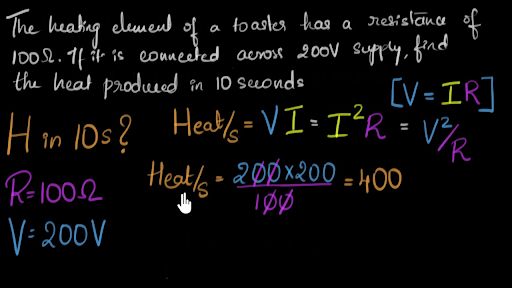 The heating element of a toaster has a resistance of
100Ω. If it is connected across 200V supply, find
the heat produced in 10 seconds
[V = IR]
H in 10s?
Heat/s = VI = I²R = V²/R
R=100Ω
Heat/s = 200×200/100 = 400
V=200V